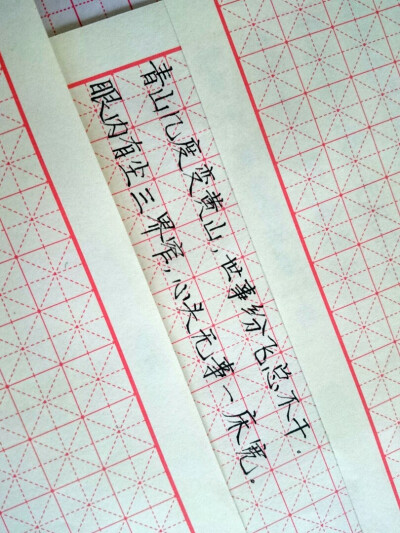 青山几度变黄山，世事纷飞总不干。
眼内有尘三界窄，心头无事一床宽。